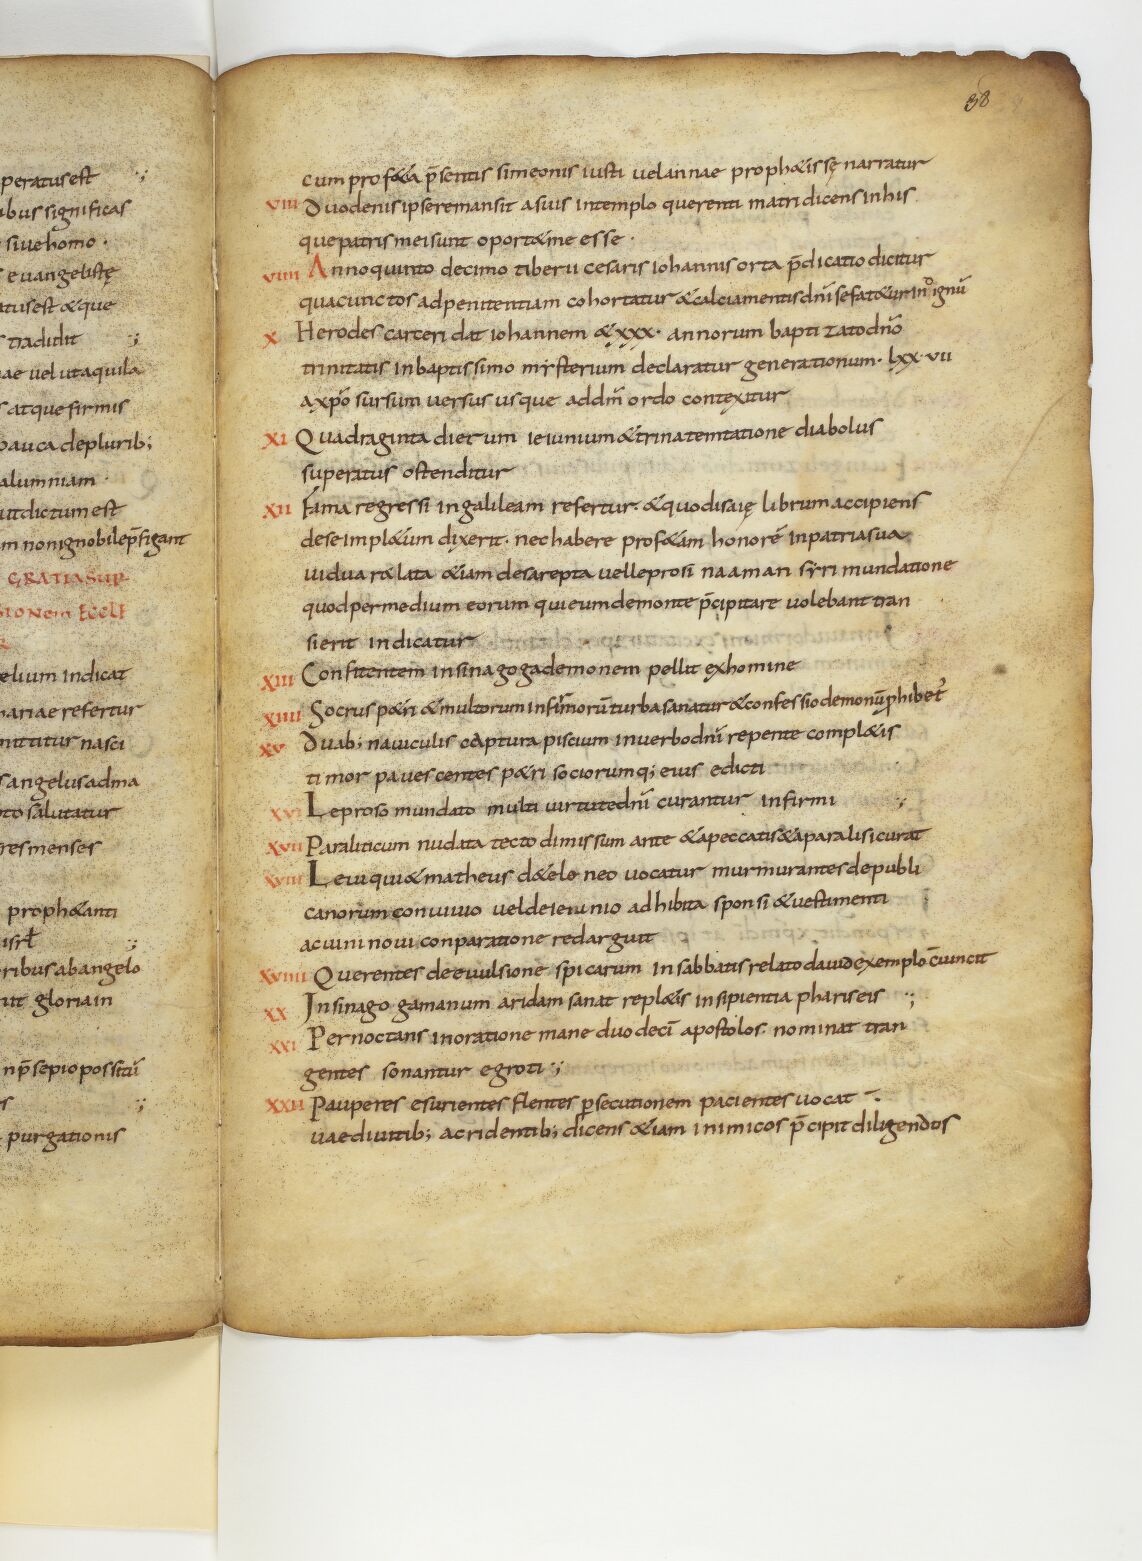 peratus est
ibus significas
siue homo ·
s euangelistę
atus est & que
s tradidit
ae uel ut aquila
s atque firmis
pauca deplurib;
alumniam ·
dictum est
m non ignobile p̄figant
GRATIA SUP
SIONEM ECCLE
elium indicat
mariae refertur
mittitur nasci
s angelus adma
to salutatur
res menses
proph&anti
isrł
oribus ab angelo
gloria in
n p̄sepio possitū
s
purgationis
38
cum prof&a p̄sentis simeonis iusti uel annae proph&issę narratur
VIII Duodenis ipse remansit a suis in templo querenti matri dicens in his
que patris mei sunt oport& me esse ·
VIIII Anno quinto decimo tiberii cesaris iohannis orta p̄dicatio dicitur
qua cunctos ad penitentiam cohortatur & calciamentis dn̄i se fat&ur indignū
X Herodes carceri dat iohannem & xxx · annorum baptizato dn̄o
trinitatis in baptissimo mysterium declaratur generationum · lxx · vii
a xp̄o sursum uersus usque ad dm̄ ordo contexitur
XI Quadraginta dierum ieiunium & trina temtatione diabolus
superatus ostenditur
XII Fama regressi in galileam refertur · & quod isaię librum accipiens
de se impl&um dixerit · nec habere prof&am honorē in patria sua
uidua relata &iam de sarepta uel leprosi naaman syri mundatione
quod per medium eorum qui eum de monte p̄cipitare uolebant tran
sierit indicatur
XIII Confitentem in sinagoga demonem pellit ex homine
XIIII Socrus p&ri & multorum infirmorū turba sanatur & confessio demonū phibet
XV Duab; nauiculis captura piscium in uerbo dn̄i repente compl&is
timor pauescentes p&ri sociorumq; eius edicti
XVI Leproso mundato multi uirtute dn̄i curantur infirmi
XVII Paraliticum nudata tecto dimissum ante & a peccatis & a paralisi curat
XVIII Leui qui & matheus d& eloneo uocatur murmurantes de publi
canorum conuiuio uel de ieiunio adhibita sponsi & uestimenti
ac uini noui conparatione redarguit
XVIIII Querentes de euulsione spicarum in sabbatis relato dauid exemplo c̄uincit
XX In sinagoga manum aridam sanat repl&is insipientia phariseis
XXI Pernoctans in oratione mane duodecī apostolos nominat tran
gentes sonantur egroti
XXII Pauperes esurientes flentes psecutionem pacientes uocat
uae diuitib; ac ridentib; dicens &iam inimicos p̄cipit diligendos